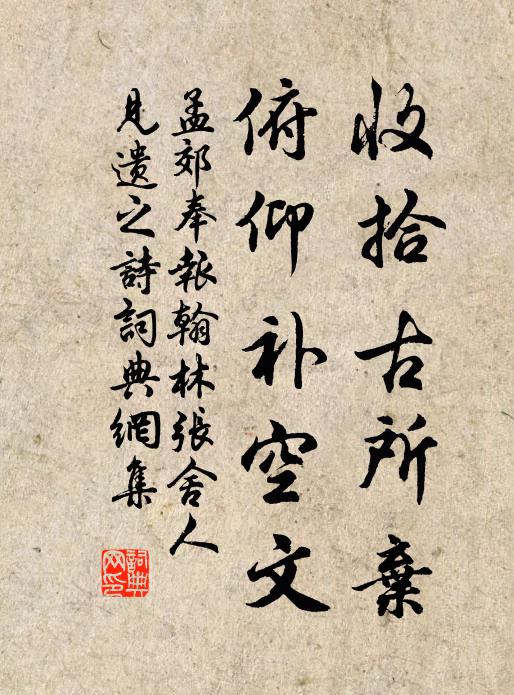 收拾古所棄
俯仰补空文
孟郊奉報翰林張舍人
見遺之詩詞典網集
詞典
网印